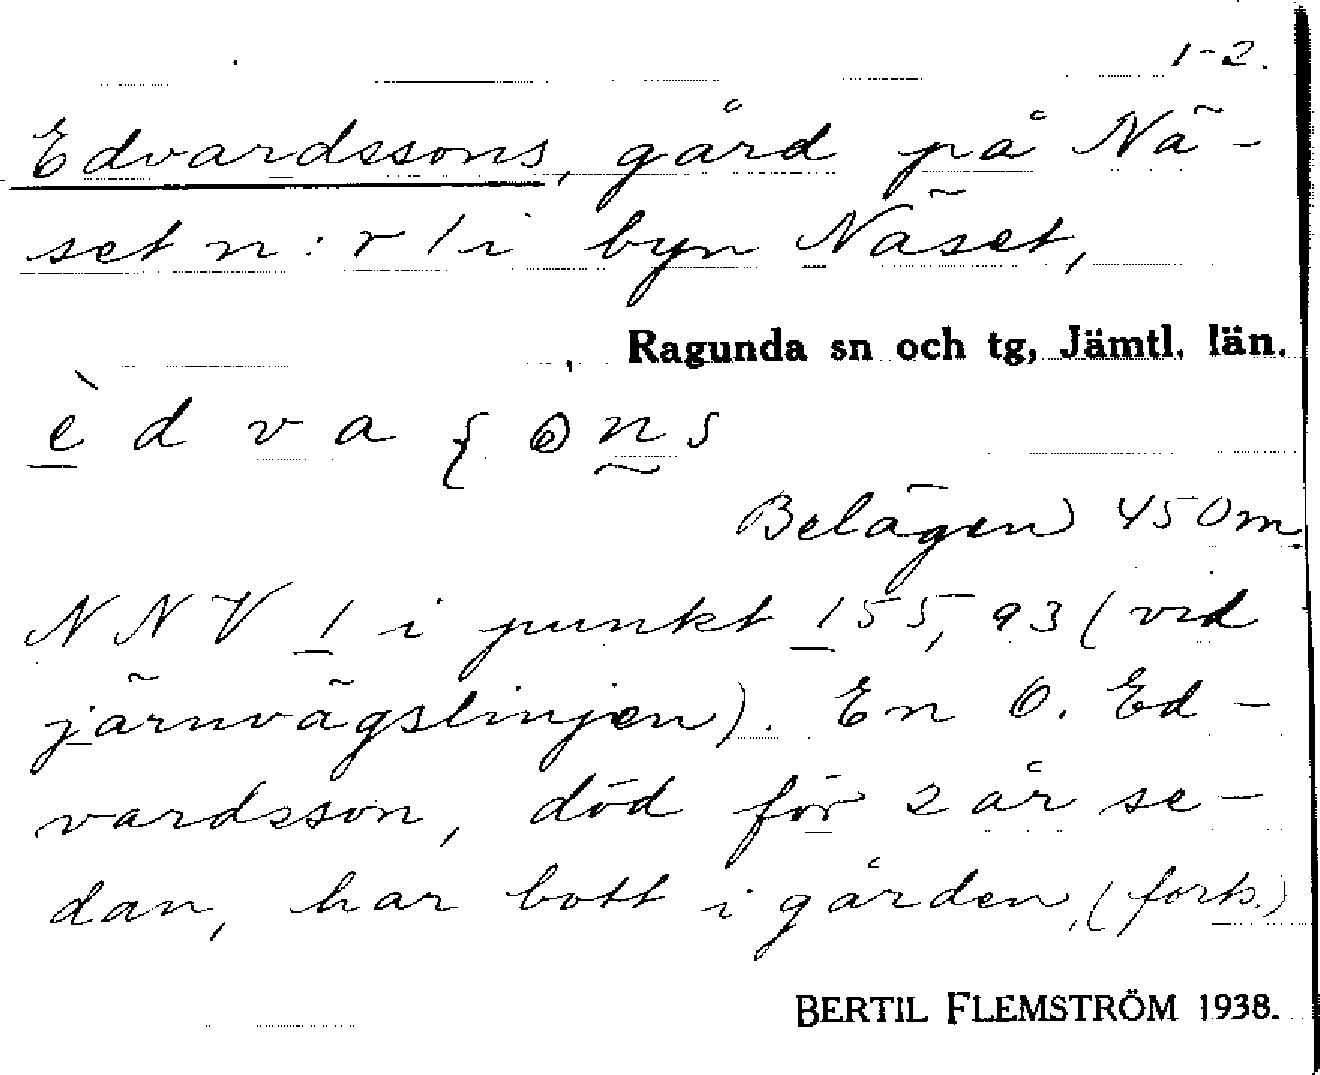 1-2.
Edvardssons, gård på Nä-
set n:r 1 i byn Näset,
Ragunda sn och tg, Jämtl. län.
Belägen 450 m.
NNV 1 i punkt 155,93 (vid
järnvägslinjen). En O. Ed-
vardsson, död för 2 år se-
dan, har bott i gården, (forts.)
BERTIL FLEMSTRÖM 1938.